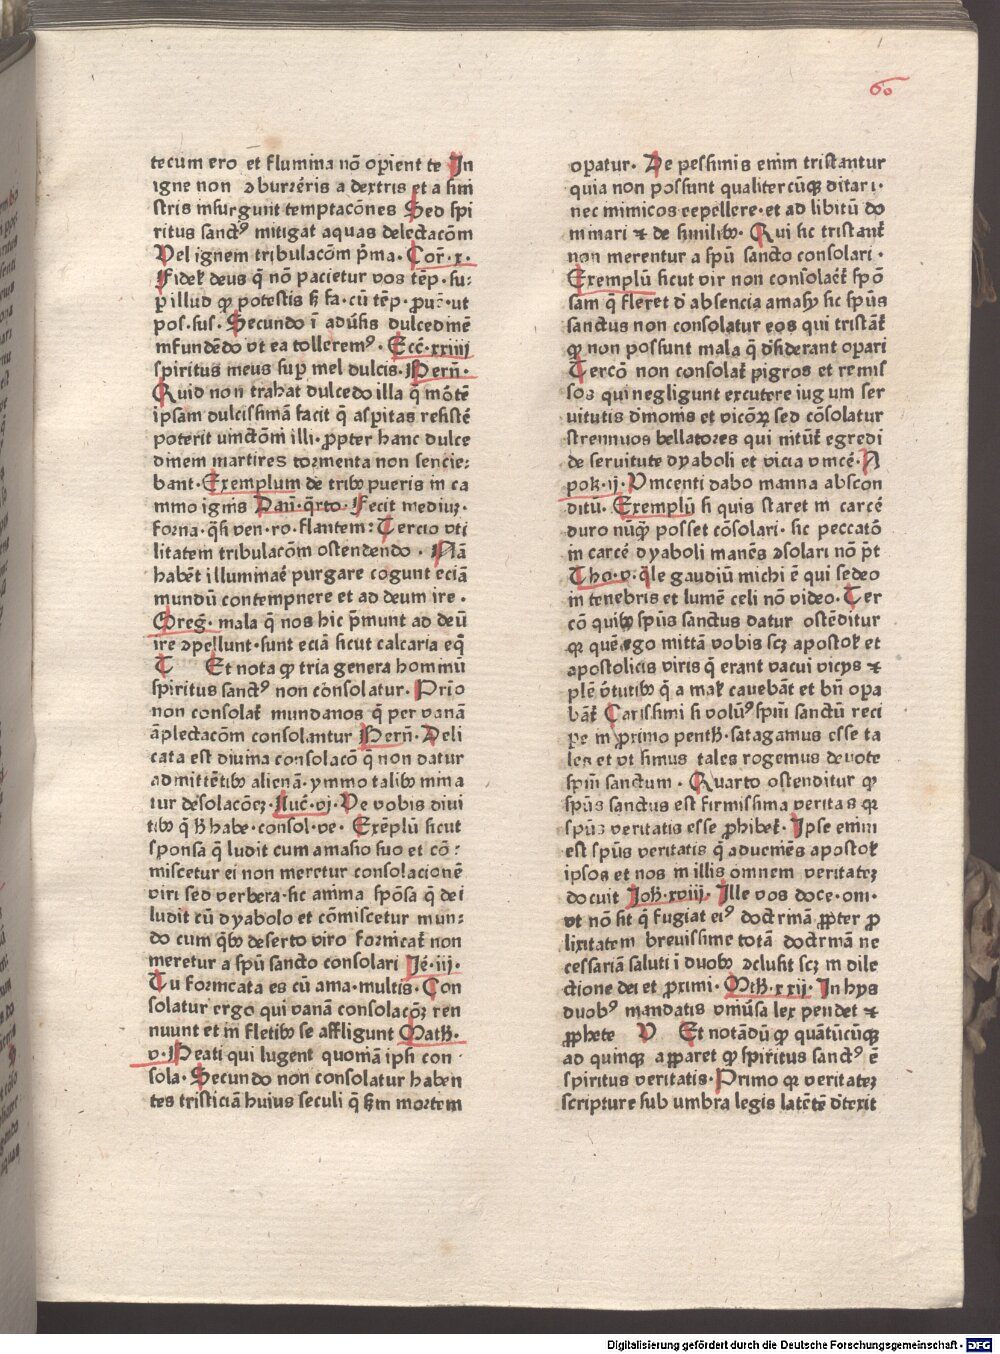 60
tecum ero et flumina nō opient te In
igne non ꝯburreris a dextris et a sini
stris insurgunt temptacōnes Sed spi
ritus sanctꝰ mitigat aquas delectacōm
Vel ignem tribulacōm p̄ma· Cor̄·x·
Fidel̄ deus q̄ nō pacietur vos tēp·su⸗
p illud qp̄ potestis sꝫ fa·cū tēp·prou·ut
pos·sus· Secundo ī adūsis dulcedinē
infundēdo vt ea tolleremꝰ· Ecc̄·xxiiij
spiritus meus sup̄ mel dulcis· Bern̄·
Quid non trahat dulcedo illa q̄ mōtē
ipsam dulcissimā facit q̄ aspitas resistē
poterit uinctōm illi· ꝓpter hanc dulce
dinem martires tormenta non sencie⸗
bant· Exemplum de tribꝫ pueris in ca
mino ignis Dan̄·q̄rto· Fecit mediuꝫ·
forna·q̄si ven·ro·flantem: Tercio vti
litatem tribulacōm ostendendo· Nā
habēt illuminar̄ purgare cogunt eciā
mundū contempnere et ad deum ire·
Greḡ· mala q̄ nos hic p̄munt ad deū
ire ꝯpellunt·sunt eciā sicut calcaria eq̄
T Et nota qp̄ tria genera hominū
spiritus sanctꝰ non consolatur· Prīo
non consolat̄ mundanos q̄ per vanā
āplectacōm consolantur Bern̄· Deli
cata est diuina consolacō q̄ non datur
admittētibꝫ alienā·ymmo talibꝫ mina
tur desolacōeꝫ· Luc̄·vj· Ve vobis diui
tibꝫ q̄ hꝫ habe·consol·ve· Exēplū sicut
sponsa q̄ ludit cum amasio suo et cō⸗
miscetur ei non meretur consolacionē
viri sed verbera·sic anima spōsa q̄ dei
ludit cū dyabolo et cōmiscetur mun⸗
do cum q̄bꝫ deserto viro fornicat̄ non
meretur a spū sancto consolari Je̅·iij·
Tu fornicata es cū ama·multis· Con
solatur ergo qui vanā consolacōꝫ ren
nuunt et in fletibꝫ se affligunt Math̄·
v· Beati qui lugent quoniā ipsi con·
sola· Secundo non consolatur haben
tes tristiciā huius seculi q̄ sꝫm mortem
opatur· De pessimis enim tristantur
quia non possunt qualitercūqꝫ ditari·
nec inimicos repellere·et ad libitū do
minari ⁊ de similibꝫ· Qui sic tristant̄
non merentur a spū sancto consolari·
Exemplū sicut vir non consolaret̄ spō
sam q̄ fleret d̄ absencia amasij sic spūs
sanctus non consolatur eos qui tristāt̄
qp̄ non possunt mala q̄ d̄siderant opari
Tercō non consolat̄ pigros et remis
sos qui negligunt excutere iugum ser
uitutis d̄monis et vicōꝝ sed cōsolatur
strennuos bellatores qui nitūt̄ egredi
de seruitute dyaboli et vicia vincē· A
pok̄·ij· Vincenti dabo manna abscon
ditū· Exemplū si quis staret in carcē
duro nūqꝫ posset cōsolari· sic peccatō
in carcē dyaboli manēs ꝯsolari nō p̄t
Tho·v·q̄le gaudiū michi ē qui sedeo
in tenebris et lumē celi nō video· Ter
cō quibꝫ spūs sanctus datur ostēditur
qr̄ quē ego mittā vobis scꝫ apostol̄ et
apostolicis viris q̄ erant vacui vicijs ⁊
plē v̄tutibꝫ q̄ a mal̄ cauebāt et bn̄ opa
bāt̄ Carissimi si volūꝰ spm̄ sanctū reci
pe in primo penth̄·satagamus esse ta
les et vt simus tales rogemus deuote
spm̄ sanctum· Quarto ostenditur qp̄
spūs sanctus est firmissima veritas qr̄
spūs veritatis esse ꝓhibet̄· Ipse enim
est spūs veritatis q̄ aduenies apostol̄
ipsos et nos in illis omnem veritateꝫ
docuit Joh̄·xviij· Ille vos doce·om·
vt nō sit q̄ fugiat eiꝰ doctrinā ꝓpter ꝓ
lixitatem breuissime totā doctrinā ne
cessariā saluti ī duobꝫ ꝯclusit scꝫ in dile
ctione dei et proximi· Mth̄·xxij· In hys
duobꝰ mandatis vniūsa lex pendet ⁊
ꝓphete V Et notādū qp̄ quātūcūqꝫ
ad quinqꝫ apparet qp̄ spiritus sanctꝰ ē
spiritus veritatis· Primo qr̄ veritateꝫ
scripture sub umbra legis latētē d̄texit
Digitalisierung gefördert durch die Deutsche Forschungsgemeinschaft · DFG